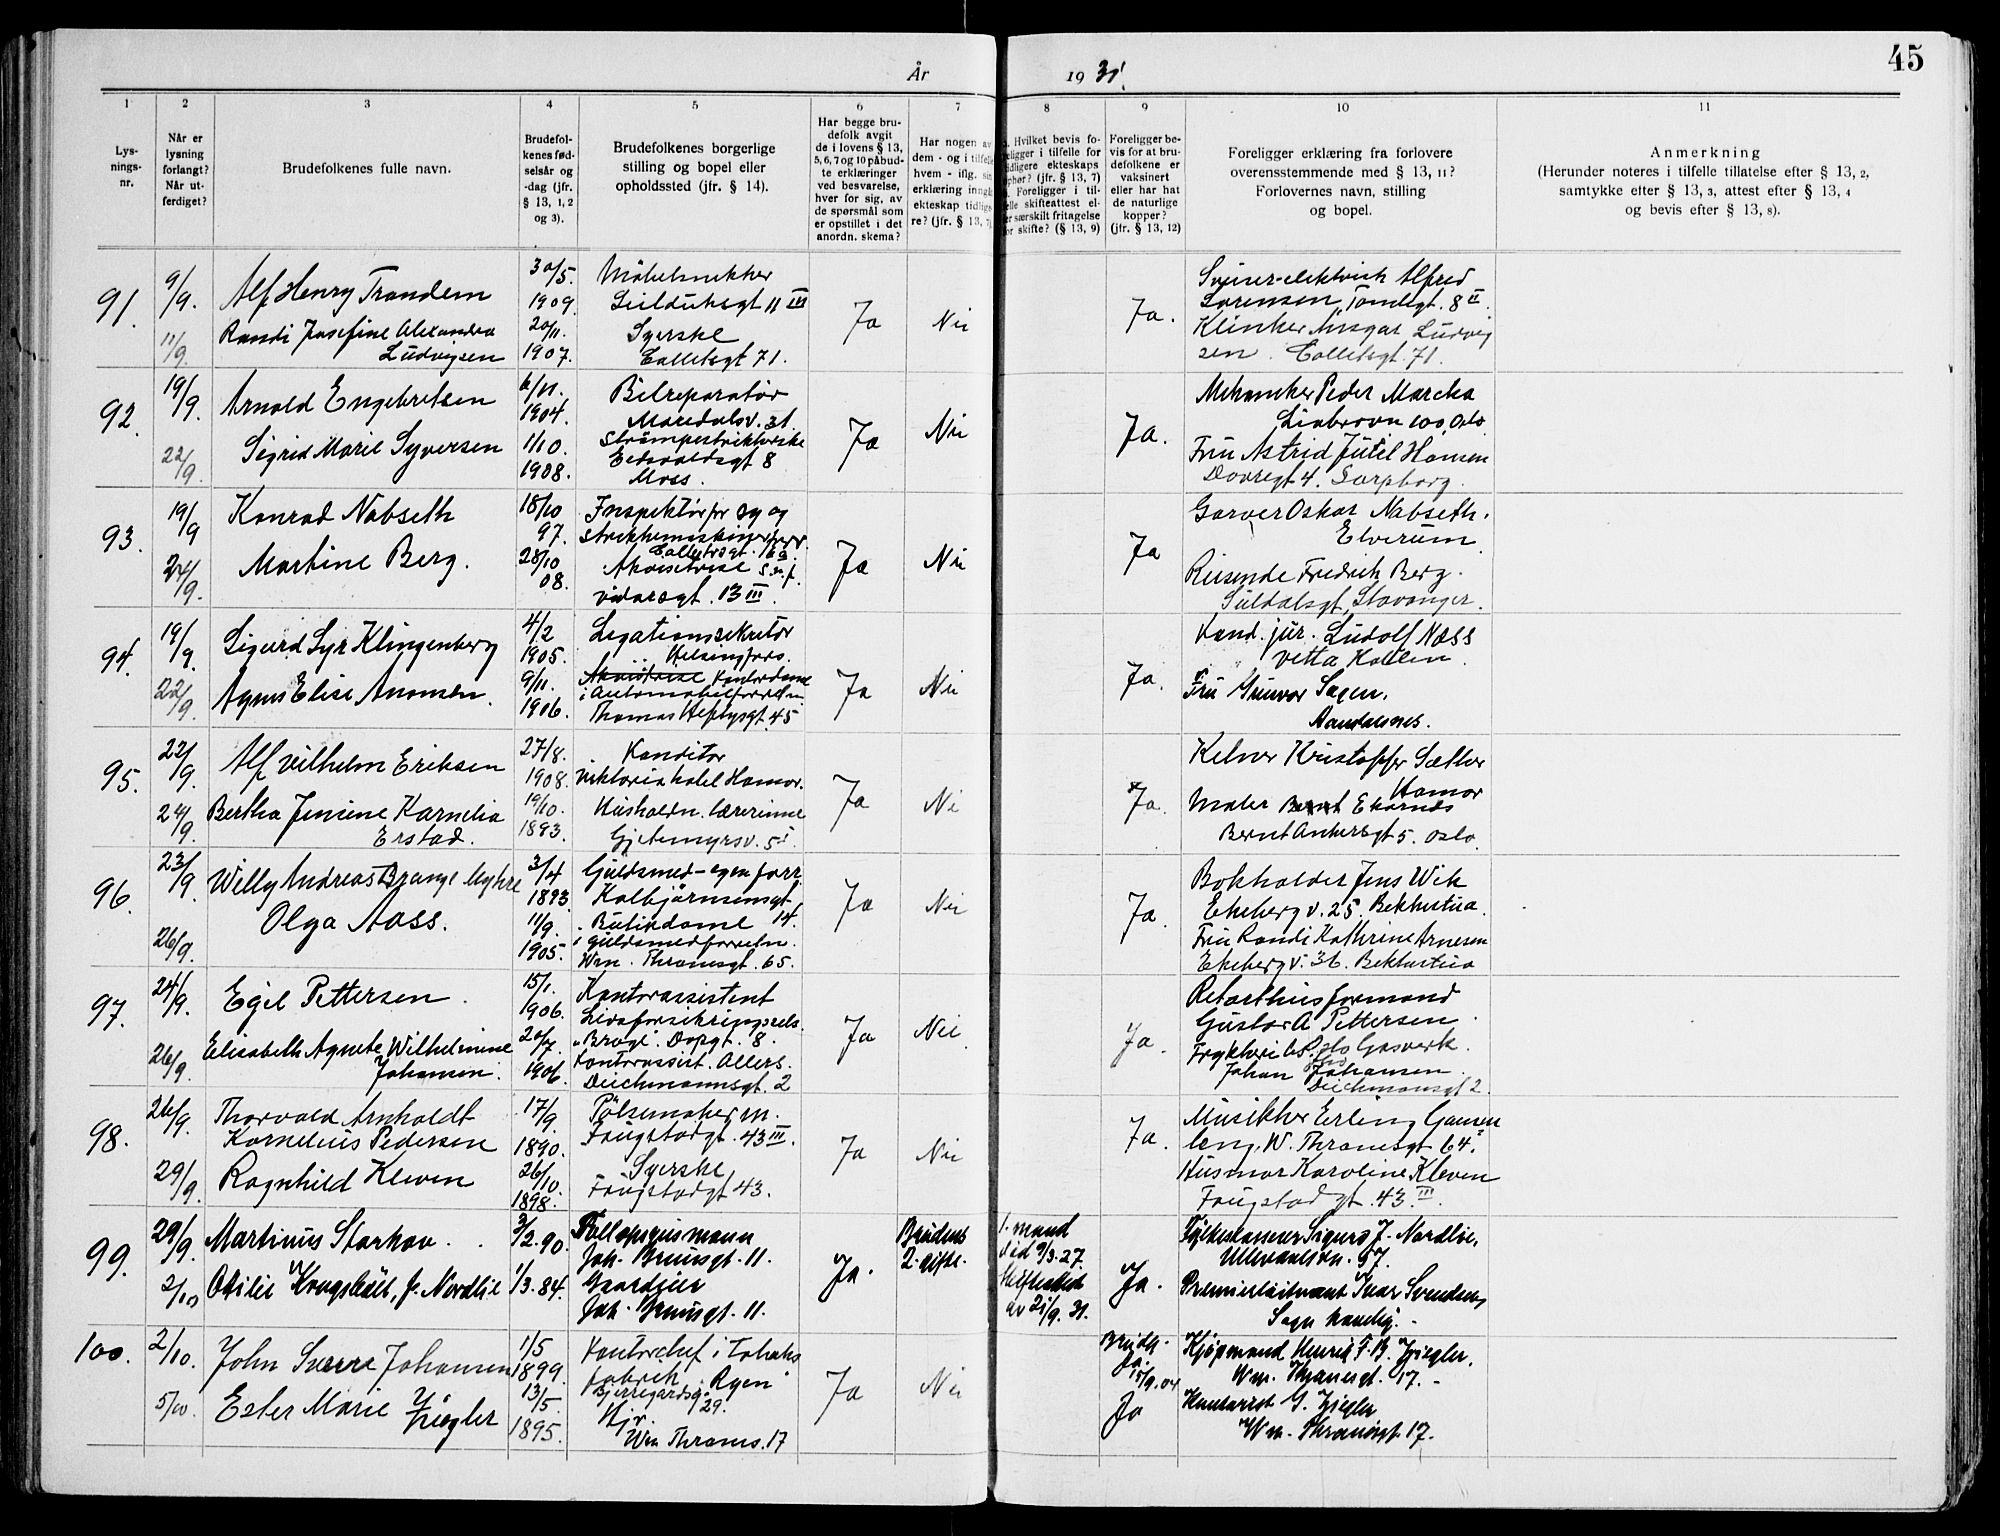 45
År 1931.
1 2 3 4 5 6 7 8 9 10 11
Lysningsnr.
Når er lysning forlangt? Når utferdiget?
Brudefolkenes fulle navn.
Brudefolkenes fødselsår og -dag (jfr. § 13, 1, 2 og 3).
Brudefolkenes borgerlige stilling og bopel eller opholdssted (jfr. § 14).
Har begge brudefolk avgit de i lovens § 13, 5, 6, 7 og 10 påbudte erklæringer ved besvarelse, hver for sig, av de spørsmål som er opstillet i det anordn. skema?
Har nogen av dem - og i tilfelle hvem - iflg. sin erklæring inngått ekteskap tidligere? (jfr. § 13, 7)
Hvilket bevis foreligger i tilfelle for tidligere ekteskaps ophør? (jfr. § 13, 7) Foreligger i tilfelle skifteattest eller særskilt fritagelse for skifte? (§ 13, 9)
Foreligger bevis for at brudefolkene er vaksinert eller har hat de naturlige kopper? (jfr. § 13, 12)
Foreligger erklæring fra forlovere overensstemmende med § 13, 11? Forlovernes navn, stilling og bopel.
Anmerkning
(Herunder noteres i tilfelle tillatelse efter § 13, 2,
samtykke efter § 13, 3, attest efter § 13, 4
og bevis efter § 13, 8).
91. 9/9. 11/9.
Alf Henry Trandem
Randi Josefine Alexandra
Ludvigsen
30/5. 1909. 20/11. 1907.
Møbelsnekker
11 III
Syerske
Colletsgt 71.
Ja Nei Ja.
Sveiser-elektrisk Alfred
Sørensen, 8 II
Klinker Ansgar Ludvig
sen. Colletsgt. 71.
92. 19/9. 22/9.
Arnold Engebretsen
Sigrid Marie Syversen
6/11. 1904. 1/10. 1908.
Bilreparatør
Maridalsv. 31.
Eidsvoldsgt 8
Moss.
Ja Nei Ja.
Mekaniker Peder
100, Oslo
Fru Astrid Jutil Hansen
Dovregt 4. Sarpborg.
93. 19/9 24/9.
Konrad Nabseth
Martine Berg.
18/10 97. 28/10 08.
Inspektør for sy og
strikkemaskiner
Colletsgt.
Akvisitrise s. m. f.
Vidarsgt. 13 III.
Ja Nei Ja
Garver Oskar Nabseth.
Elverum.
Reisende Fredrik Berg.
Suldalsgt, Stavanger.
94. 19/9. 22/9.
Sigurd Syr Klingenberg
Agnes Elise Anonsen.
4/2 1905. 9/11. 1906.
Legationssekretær
Helsingfors.
Akvisitrise Kontordame
i Automobilforretn.
Thomas Heftysgt. 45
Ja Nei Ja.
Kand. jur. Ludolf Næss
Vettakollen.
Fru Gunvor Sagen,
Aandalsnes.
95. 22/9. 24/9.
Alf Vilhelm Eriksen
Bertha Jensine Kornelia
Erstad.
27/8. 1908. 19/10. 1893.
Konditor
Viktoria hotel Hamar.
Husholdn. lærerinne
Gjetemyrsv. 5 I
Ja Nei Ja.
Kelner Kristoffer Sæther
Hamar
Maler Bernt Ekornes
Bernt Ankersgt 5. Oslo.
96. 23/9. 26/9.
Willy Andreas Brange Myhre
Olga Aass.
3/4 1893. 11/9. 1905.
Guldsmed - egen forr.
Kolbjørnsensgt
14.
Butikdame
i guldsmedforretn.
Wm. Thranesgt. 65.
Ja Nei Ja.
Bokholder Jens Wik
Ekeberg v. 25. Bekkestua.
Fru Randi Kathrine Arnesen
Ekeberg v. 36. Bekkestua
97. 24/9. 26/9.
Egil Pettersen.
Elisabeth Agnete Wilhelmine
Johansen.
15/1. 1906. 20/7. 1906.
Kontorassistent
Livsforsikringssels.
"Brage". Dopsgt. 8.
Kontorassist. Allers.
Deichmannsgt. 2
Ja Nei Ja.
Retorthusformand
Gustav A Pettersen.
Oslo Gasverk.
Johan Johansen.
Deichmansgt 2.
98. 26/9. 29/9.
Thorvald Arnholdt
Kornelius Pedersen
Ragnhild Kleven
17/9. 1890. 26/10. 1898.
Pølsemaker m.
Fougstadgt. 43 III.
Syerske
Fougstadgt 43.
Ja Nei Ja.
Musikker Erling Gausen
leng, W. Thranesgt 64.
Husmor Karoline Kleven
Fougstadgt. 43 III.
99. 29/9. 2/10
Martinus Storhov.
Otilie Kongshell, f. Nordlie
3/2. 90. 1/3. 84.
Tollopsynsmann
Joh. Bruunsgt. 11.
Joh. Bruunsgt. 11.
Ja. Brudens 2. gifte.
1. mand
død 9/3. 27.
Skifteattest
av 21/9. 31.
Ja.
Fylkeskasserer Sigurd J. Nordlie,
Ullevaalsvn. 97.
Premierløitnant Ivar Svendsen,
Sogn haveby.
100. 2/10. 5/10.
John Sverre Johansen
Ester Marie Ziegler
1/5 1899. 13/5. 1895.
Kontorchef i Tobaks
fabrik "Ryen"
Bjerregårdsg. 29.
Hjv.
Wm Thranes. 17
Ja Nei
Brudg. Ja.
15/9. 04
Ja
Kjøpmand Henrik F. B. Ziegler,
Wm. Thranesgt. 17.
Kontorist G. Ziegler
Wm. Thranesgt. 17.